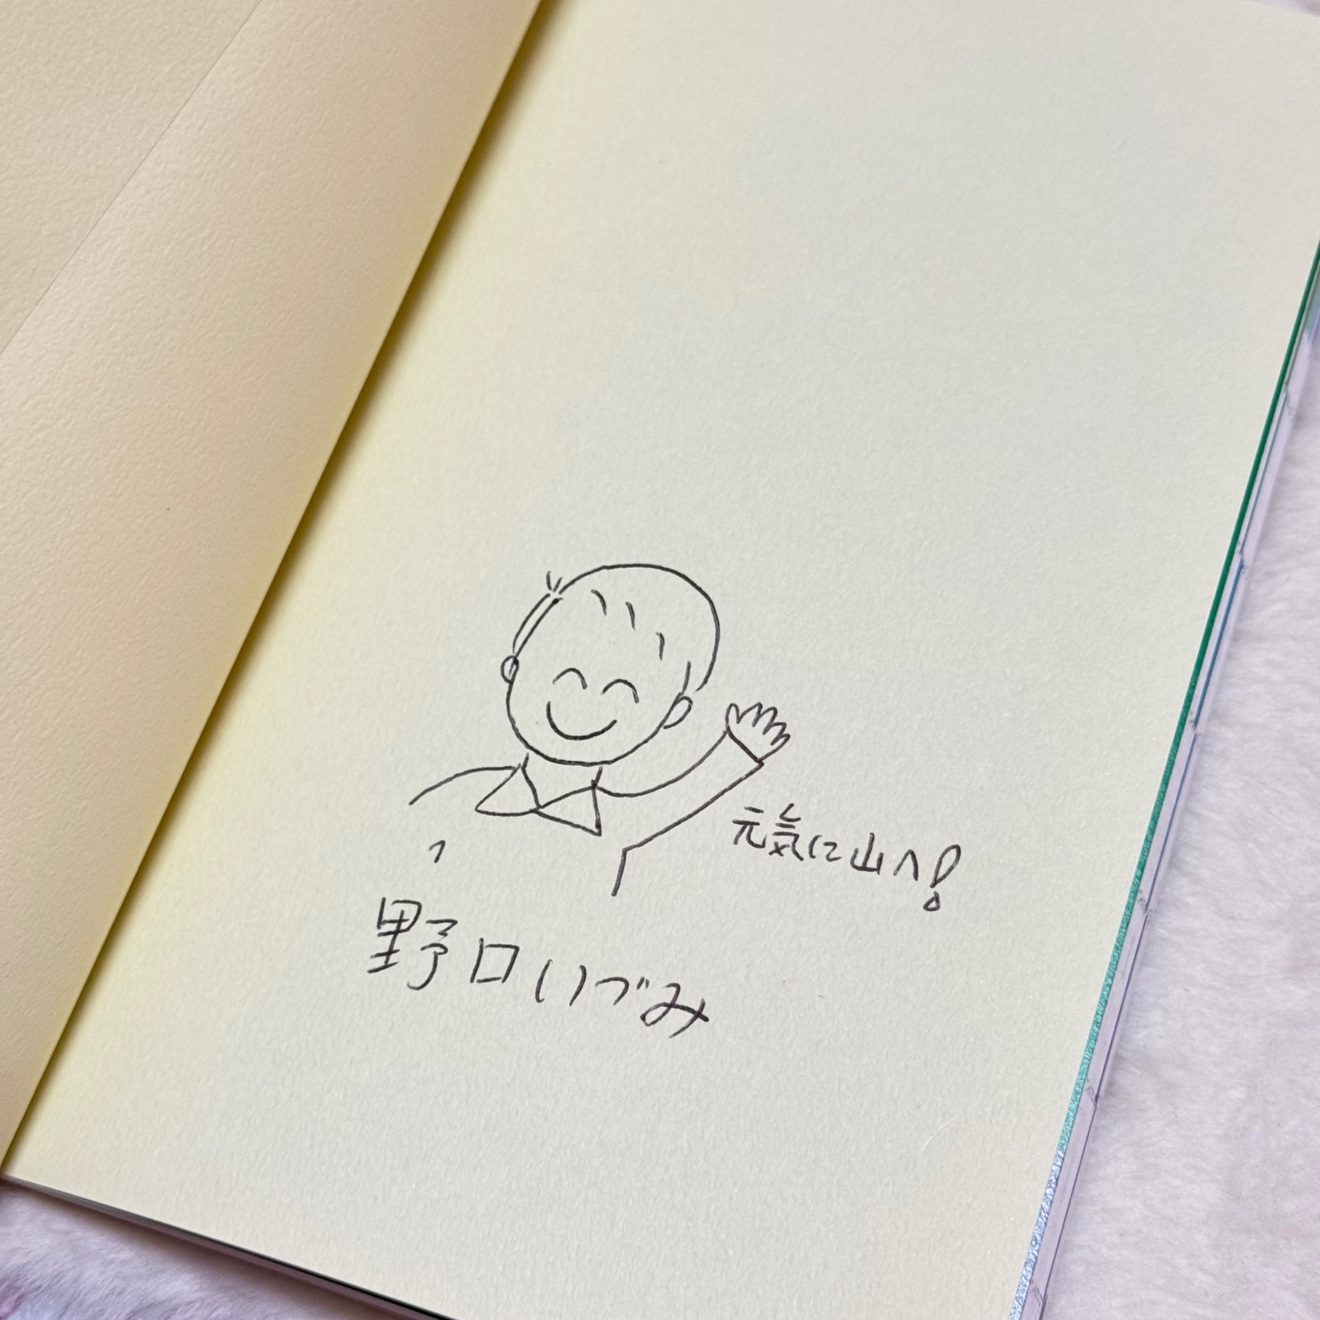 元気に山へ!
野口いづみ